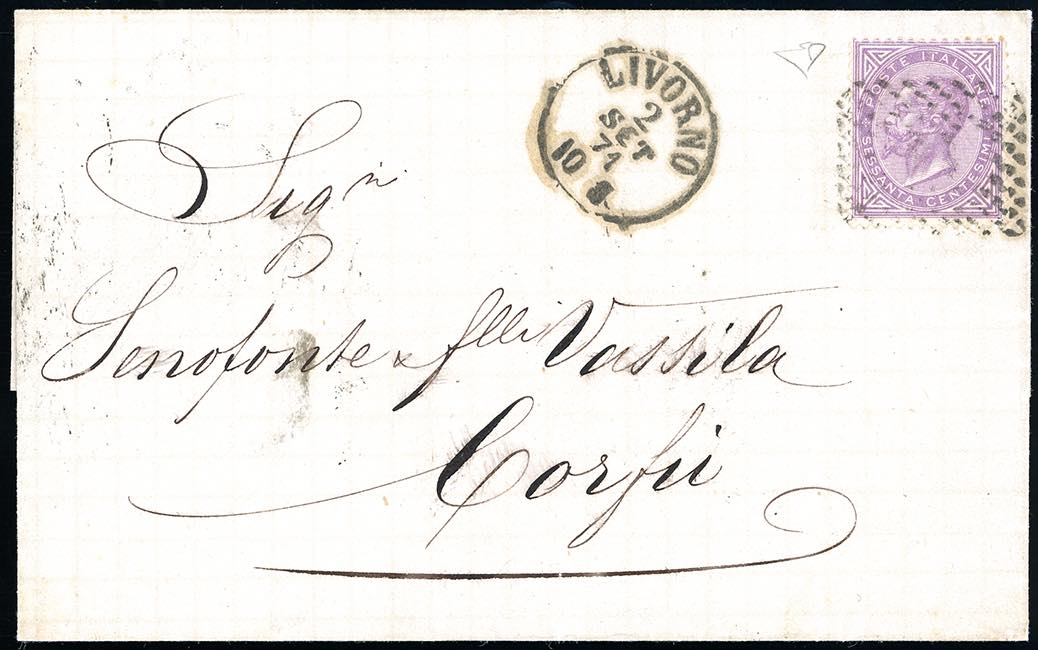 LIVORNO
2
SET
71
10 S
POSTE ITALIANE
SESSANTA CENTESIMI
Sigri
Senofonte & flli Vassila
Corfù